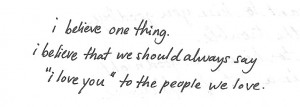 i believe one thing.
i believe that we should always say
"i love you" to the people we love.